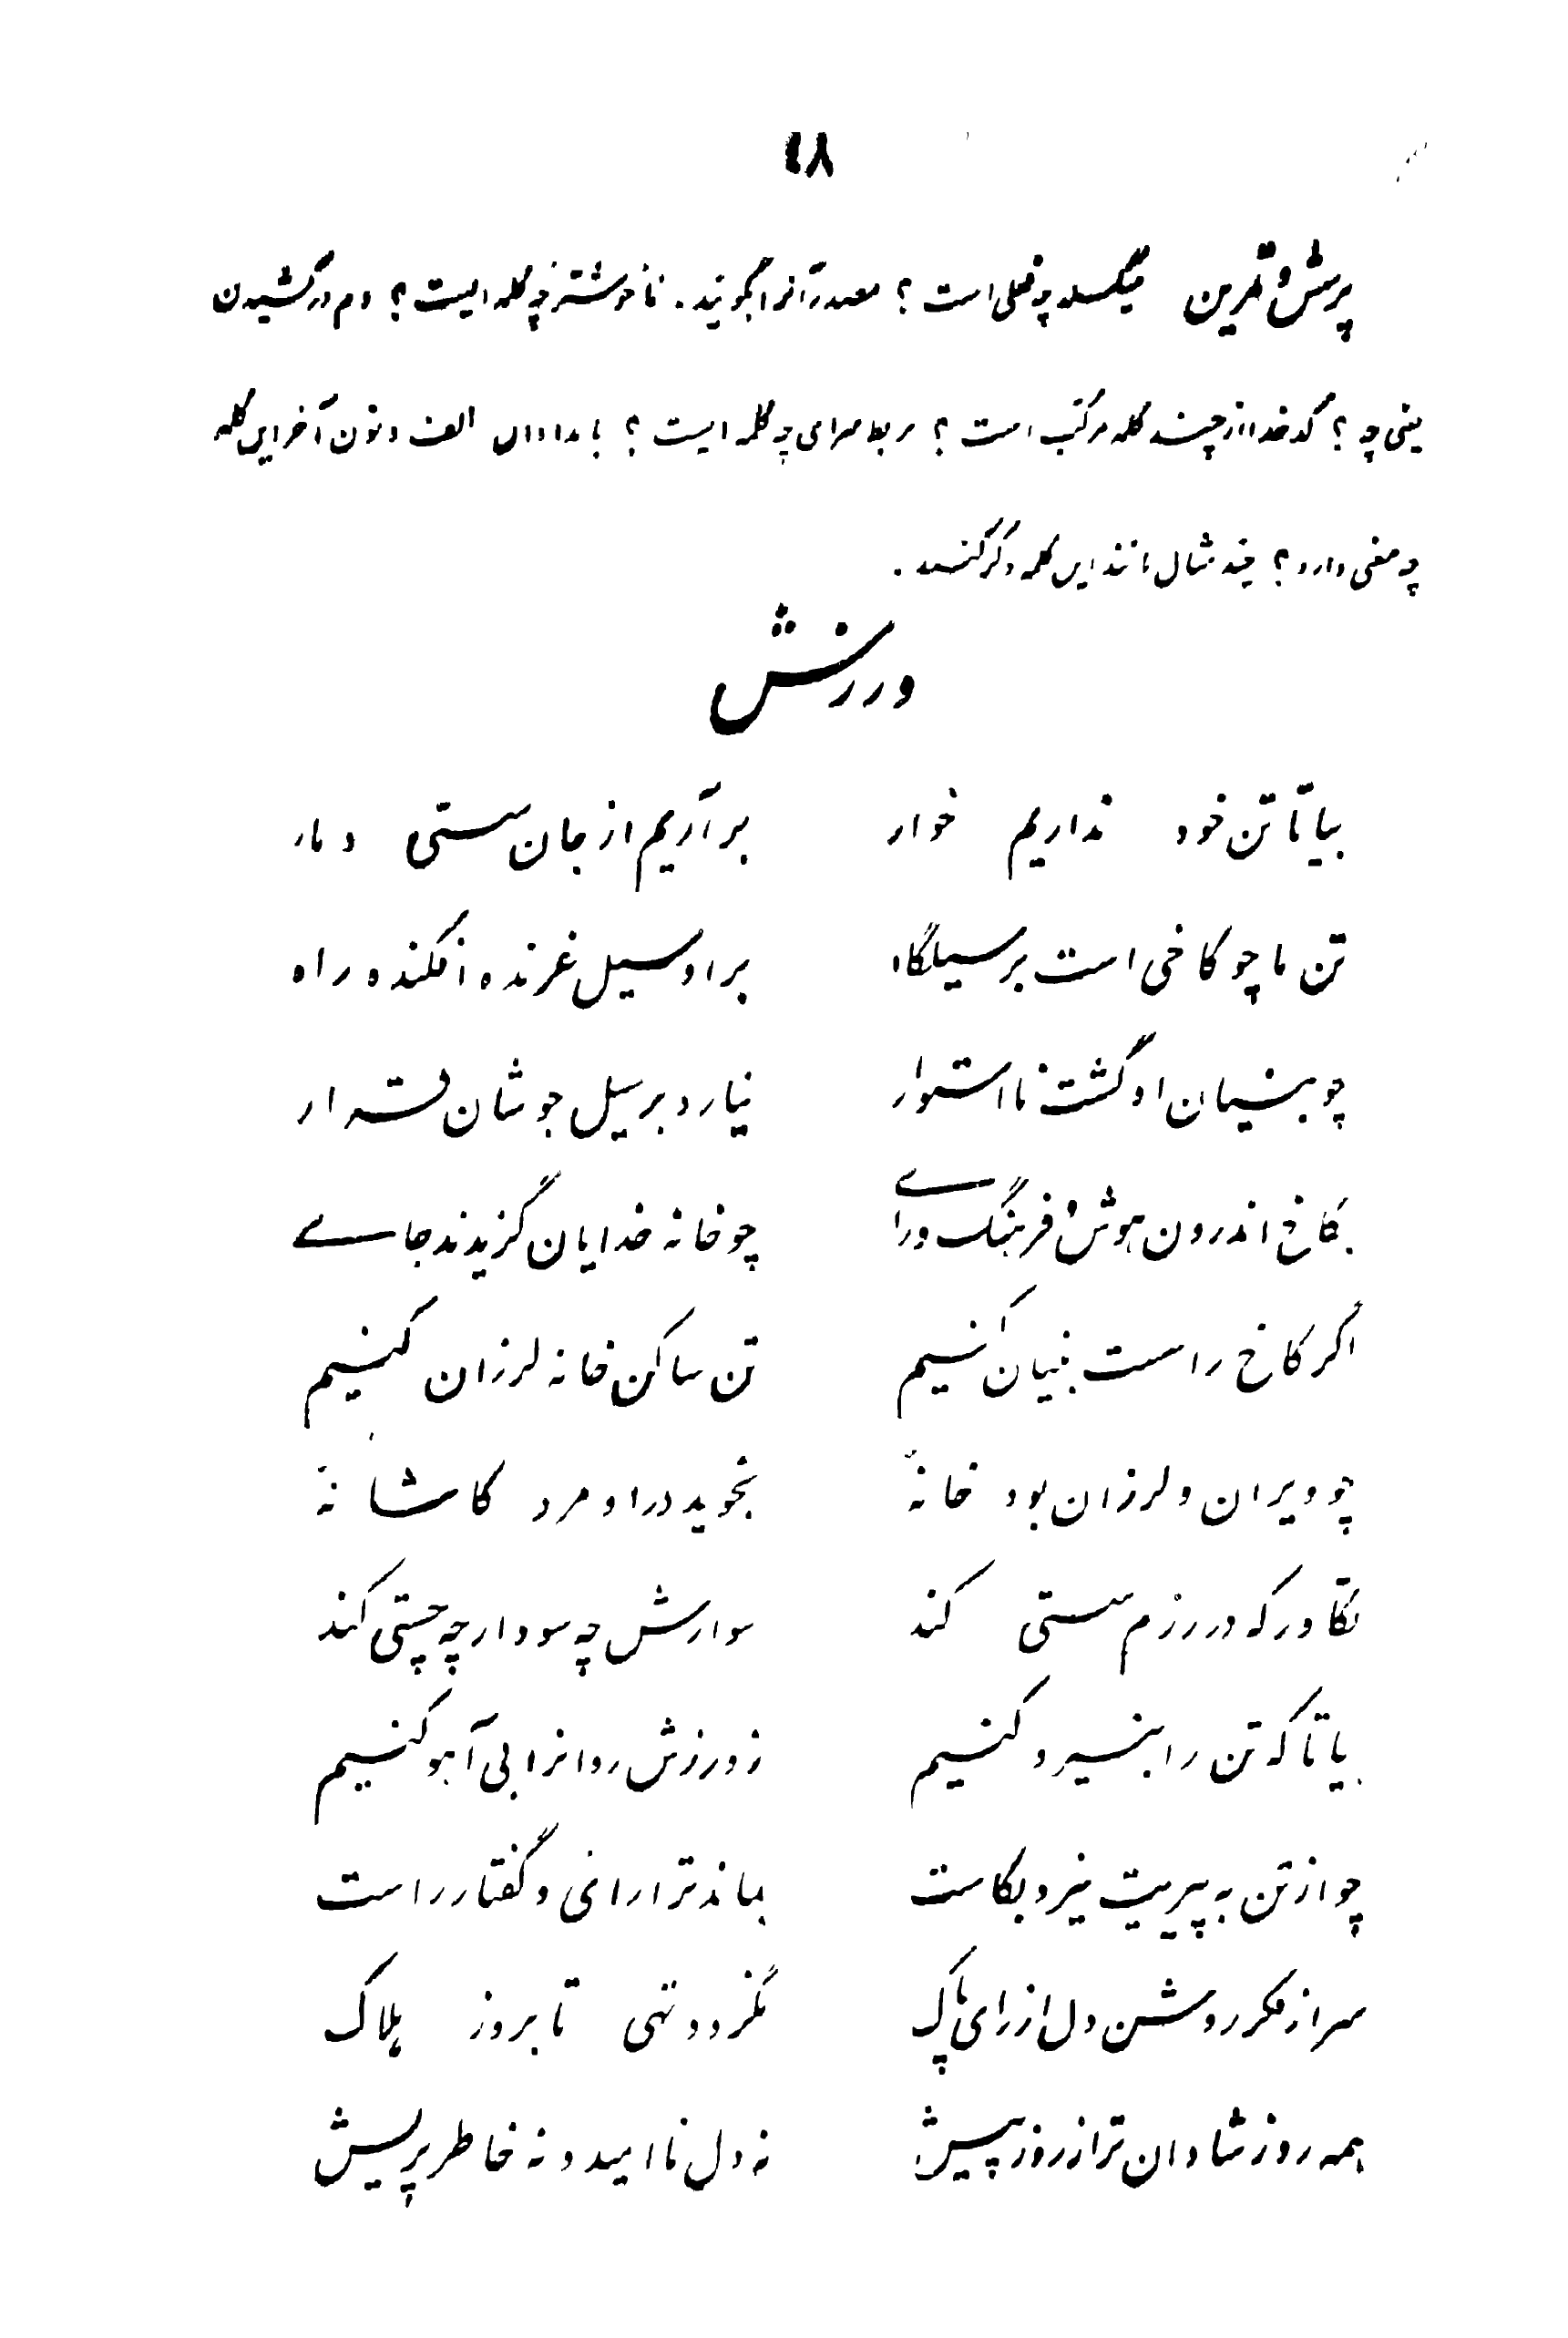 ۴۸
پرسش و تمرین میگسلد چه فعلی است ؟ مصدر آنرا بگوئید . ناخوشتر چه کلمه ایست ؟ دم در کشیدن
یعنی چه ؟ کدخدا از چند کلمه مرکب است ؟ سرای چه کلمه ایست ؟ بامدادان الف و نون آخر این کلمه
چه معنی دارد ؟ چند مثال مانند این کلمه ذکر کنید .
ورزش
بیا تا تن خود نداریم خوار بر آریم از جان سستی دمار
تن ما چو کاخی است بر سیلگاه بر او سیل غرنده افکنده راه
چو بنیان او گشت نااستوار نیارد بر سیل جوشان قرار
بکاخ اندرون هوش و فرهنگ و رای چو خانه خدایان گزیدند جای
اگر کاخ را سست بنیان کنیم تن ساکن خانه لرزان کنیم
چو ویران و لرزان بود خانهٔ نجوید در او مرد کاشانهٔ
تکاور که در رزم سستی کند سوارش چه سود ار چه چستی کند
بیا تا که تن را بنیرو کنیم ز ورزش روانرا بی آهو کنیم
چو از تن به پیریت نیرو بکاست بماند ترا رای و گفتار راست
سر از فکر روشن دل از رای پاک نگردد تهی تا بروز هلاک
همه روز شادان تر از روز پیش نه دل ناامید و نه خاطر پریش